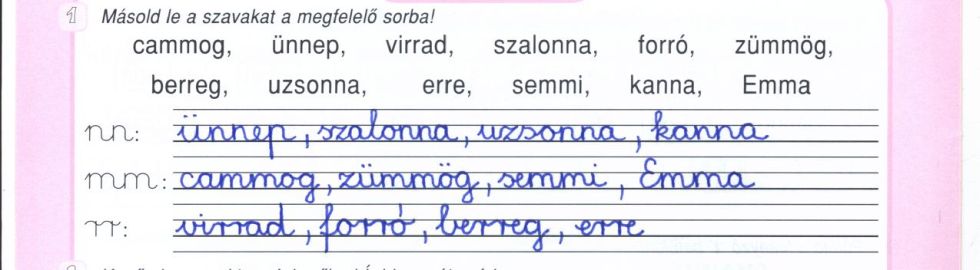 1 Másold le a szavakat a megfelelő sorba!
cammog, ünnep, virrad, szalonna, forró, zümmög,
berreg, uzsonna, erre, semmi, kanna, Emma
nn: ünnep, szalonna, uzsonna, kanna
mm: cammog, zümmög, semmi, Emma
rr: virrad, forró, berreg, erre